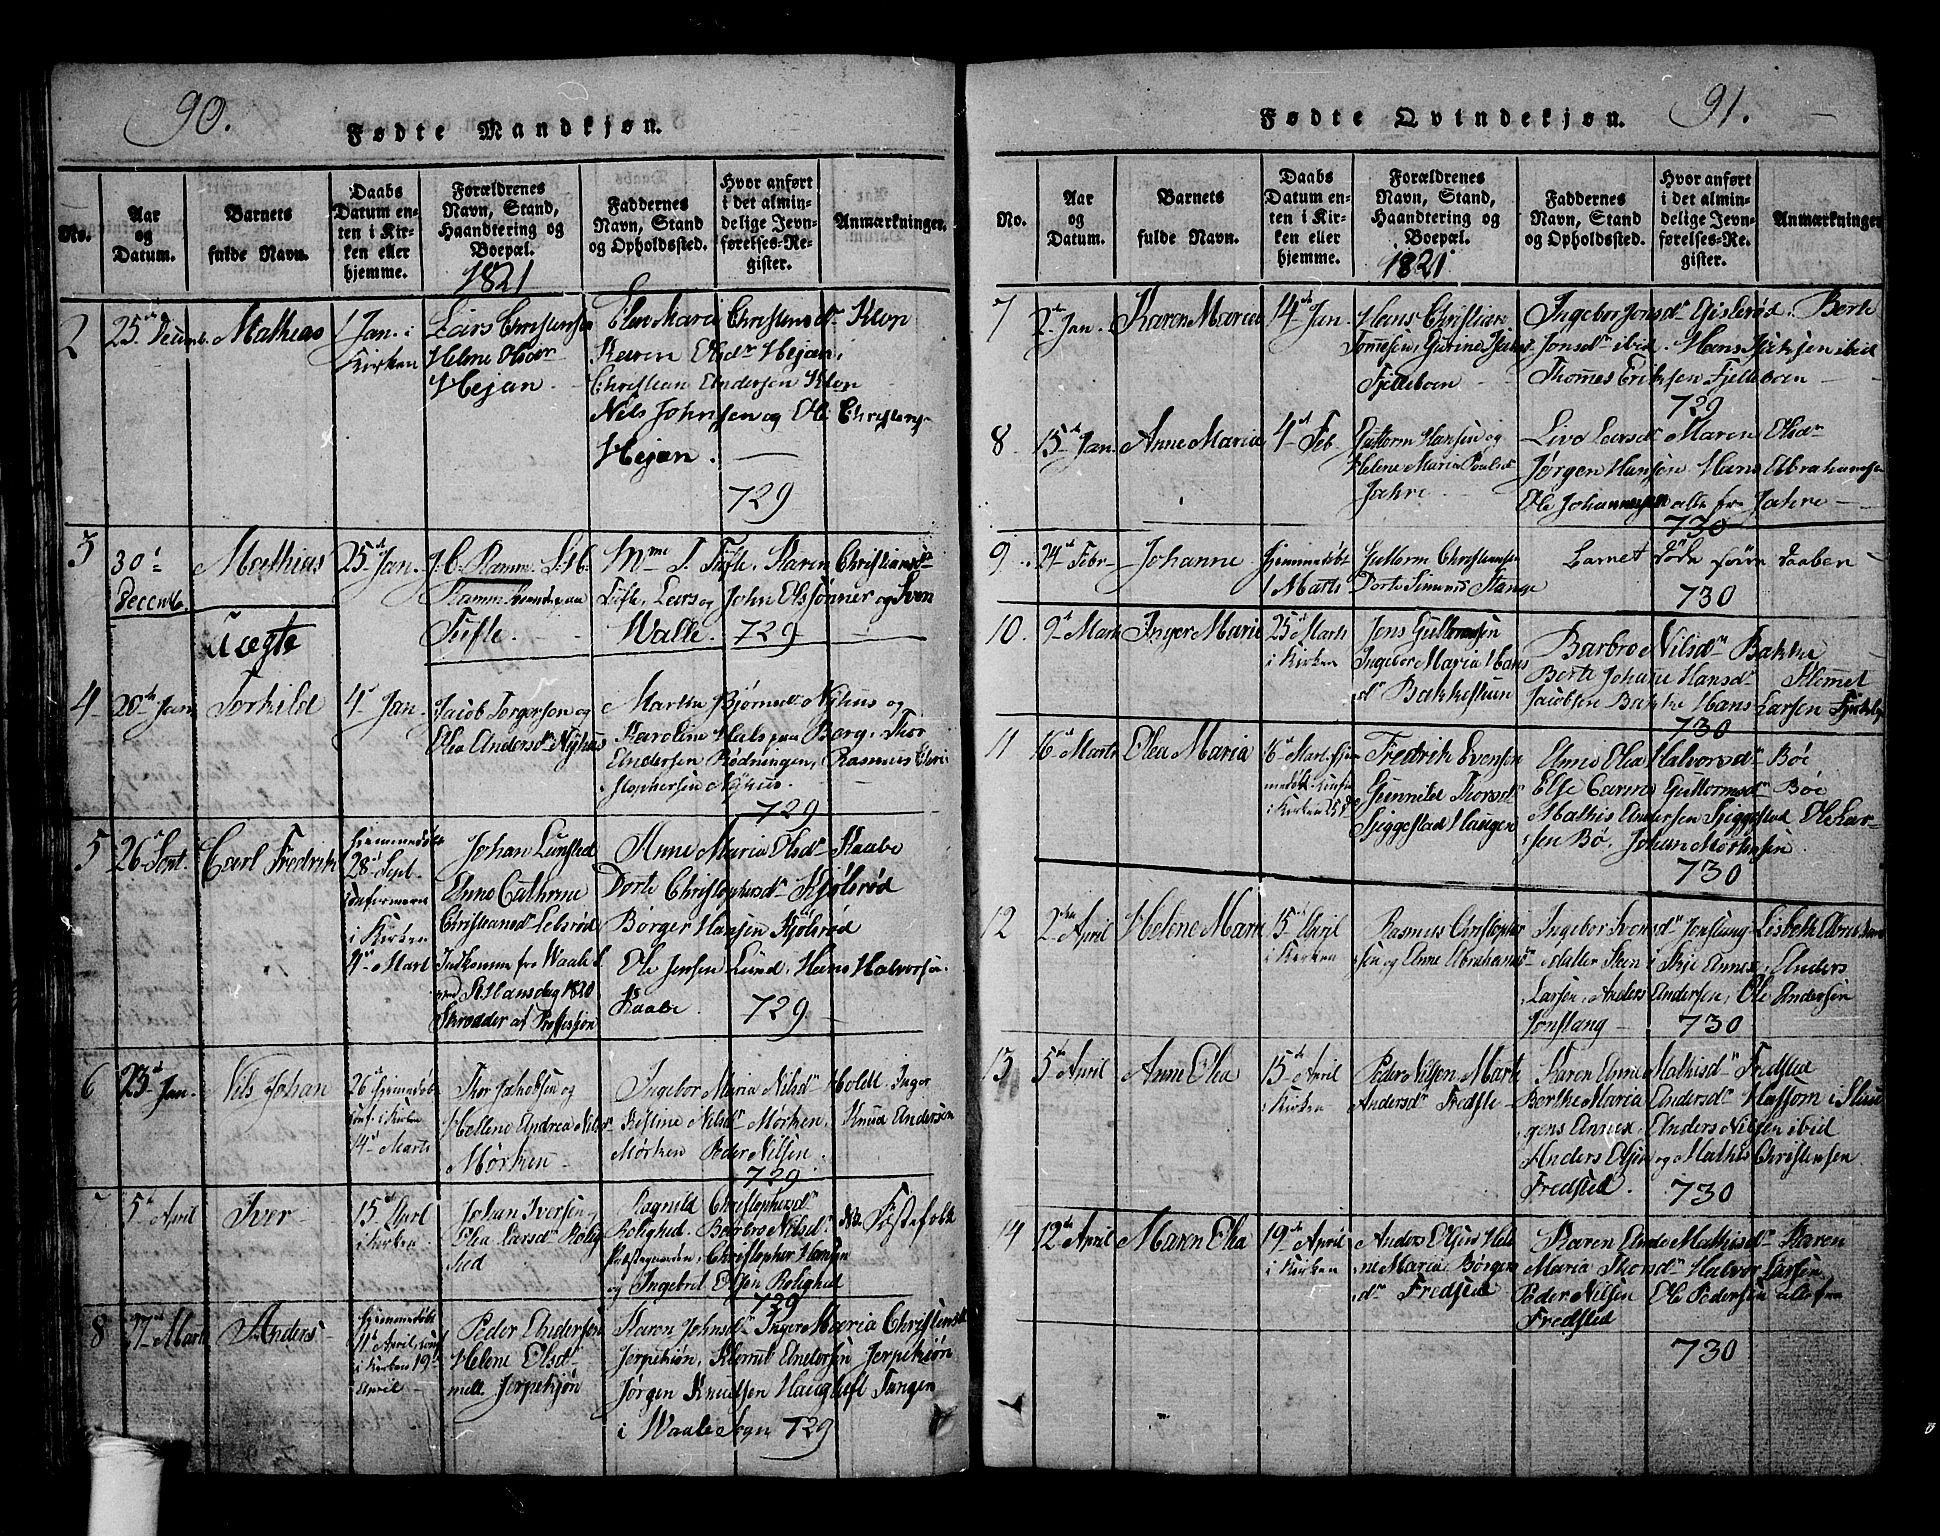 90.
Fødte Mandkjøn.
No.
Aar
og
Datum.
Barnets
fulde Navn.
Daabs
Datum en-
ten i Kir-
ken eller
hjemme.
Forældrenes
Navn, Stand,
Haandtering og
Boepæl.
Faddernes
Navn, Stand
og Opholdssted.
Hvor anført
i det almin-
delige Jevn-
førelses-Re-
gister.
Anmærkninger.
1821
2
25de Decemb.
Mathias
1 Jan. i
Kirken
Lars Christensen
Helene Olsdr
Hejan.
Elen Maria Christensdr Klop
Karen Olsdr Hejan,
Christian Andersen Klop
Nils Johnsen og Ole Christens
Hejan.
729
3
30
Decemb.
Mathias
Uægte
25de Jan.
Tufte.
Mme T. Tufte, Karen Christiansdr
Tufte, Lars og John Olsønner og Sven
Walle. 729
4
20de Jan
Torkild
4 Jan.
Jacob Torgersen og
Olea Andersdr Nyhus
Marthe Bjørnsdr Nyhus og
Karoline Hals paa Borg, Thor
Andersen Rødningen, Rasmus Chri-
stophersen Nyhus.
729
5
26 Sept.
Carl Fredrik
hjemmedøbt
28 Sept.
confirmeret
i Kirken
4 Mart
Johan Lunsted
Anne Cathrine
Christiansdr Lebsrød
Indkomne fra Waale
St Hansdag 1820
Skrædder af Profession
Anne Maria Olsdr Raabe
Dorte Christophersdr Kjølsrød
Børger Hansen Kjølsrød
Ole Jensen Lund, Hans Halvorsen
Raabe.
729
6
23de Jan.
Nils Johan
26de hjemmedøb
conf. i Kirken
4de Marts
Thor Jakobsen og
Hellene Andrea Nilsdr
Mørken
Ingebor Maria Nilsdr Holdt, Inger
Kistine Nilsdr Mørken, Knud Andersen
Mørken Peder Nilsen.
729
7
5de April
Iver
15de April
i Kirken
Johan Iversen
Olea Larsdr Rolig-
hed
Ragnild Christophersdr
Rolighed. Barbro Nilsdr
Præstegaarden, Christopher Hansen
og Ingebret Olsen Rolighed
NB. Fæstefolk
729
8
27de Marts
Anders
hjemmedøbt
11te April, conf
i Kirken 19de
April
Peder Andersen
Helene Olsdr
mell. Jerpekjøn
Karen Johnsdr Inger Maria Christensdr
Jerpekjøn, Klemet Andersen Jerpekjøn
Jørgen Knudsen Haugtuft Tangen
i Waale Sogn 729
91.
Fødte Qvindekjøn.
No.
Aar
og
Datum.
Barnets
fulde Navn.
Daabs
Datum en-
ten i Kir-
ken eller
hjemme.
Forældrenes
Navn, Stand,
Haandtering og
Boepæl.
Faddernes
Navn, Stand
og Opholdssted.
Hvor anført
i det almin-
delige Jevn-
førelses-Re-
gister.
Anmærkninger.
1821
7
2de Jan.
Karen Maria
14de Jan.
Hans Christian
Tomesen, Gurine
Fjelleboen
Ingebor Jonsdr Gislerød. Berte
Jonsdr ibid. Hans Isaksen ibid
Thomes Eriksen Fjelleboen
729
8
15de Jan.
Anne Maria
4de Feb
Guttorm Hansen og
Helene Maria Poulsdr
Jahre
Livo Larsdr Maren Olsdr
Jørgen Hansøn Hans Abrahamsen
Ole Johannesen alle fra Jahre
730
9
24de Febr
Johanne
hjemmedøbt
1 Marts
Guttorm Christensen
Dorte Simensdr Stange
Barnet døde forinn Daaben
730
10.
9de Marts
Inger Marie
25de Marts
i Kirken
Jens Guttormsen
Ingebor Maria Hans
dr Bakkestuen
Barbro Nilsdr Bakke
Berte Johane Hansdr Klemet
Jacobsen Bakke Hans Larsen
730
11
16de Marts
Olea Maria
16de Mart. hjem-
i Kirken
Fredrik Evensen
Gunnild Thorsdr
Sjeggestad Haugen
Anne Olea Halvorsdr Bøe
Else Carine Guttormsdr Bøe
Mathis Andersen Sjeggestad Ole Lar-
sen Bø, Johan Mortensen
730
12
2den April
Helene Marie
15de April
i Kirken
Rasmus Christopher-
sen og Anne Abrahamsdr
Ingebor Ivensdr Jonstang Lisbeth Abrahams
datter Steen i Skje Annex, Anders
Larsen, Anders Andersen, Ole Andersen
Jonstang 730
13
5de April
Anne Olea
15de April
i Kirken
Peder Nilsen Marte
Andersdr Fredste
Karen Anne Mathisdr Fredsted
Berthe Maria Andersdr Klassom i Skou
gens Annex, Anders Nilsen ibid
Anders Olsen og Mathis Christensen
Fredsted. 730
14
12te April
Maren Olea
19de April
i Kirken
Anders Olsen Hele
ne Maria Børgers
dr Fredsted
Karen Anne Mathisdr Karen
Maria Thorsdr Halvor Larsen
Peder Nilsen Ole Pedersen alle fra
Fredsted
730